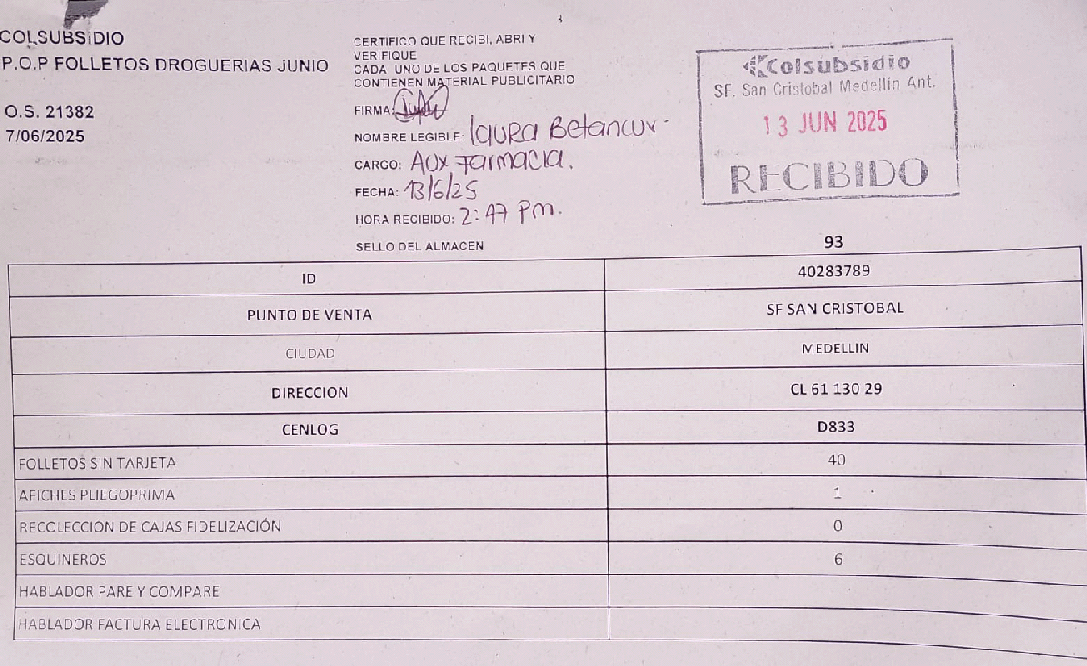 COLSUBSIDIO
P.O.P FOLLETOS DROGUERIAS JUNIO
O.S. 21382
7/06/2025
CERTIFICO QUE RECIBI, ABRI Y
VERIFIQUE
CADA UNO DE LOS PAQUETES QUE
CONTIENEN MATERIAL PUBLICITARIO
FIRMA:
NOMBRE LEGIBLE: Laura Betancur
CARGO: Aux Farmacia.
FECHA: 13/6/25
HORA RECIBIDO: 2:47 Pm.
SELLO DEL ALMACEN
Colsubsidio
SF. San Cristobal Medellin Ant.
13 JUN 2025
RECIBIDO
93
ID 40283789
PUNTO DE VENTA SF SAN CRISTOBAL
CIUDAD MEDELLIN
DIRECCION CL 61 130 29
CENLOG D833
FOLLETOS SIN TARJETA 40
AFICHES PLIEGOPRIMA 1
RECOLECCION DE CAJAS FIDELIZACIÓN 0
ESQUINEROS 6
HABLADOR PARE Y COMPARE
HABLADOR FACTURA ELECTRONICA